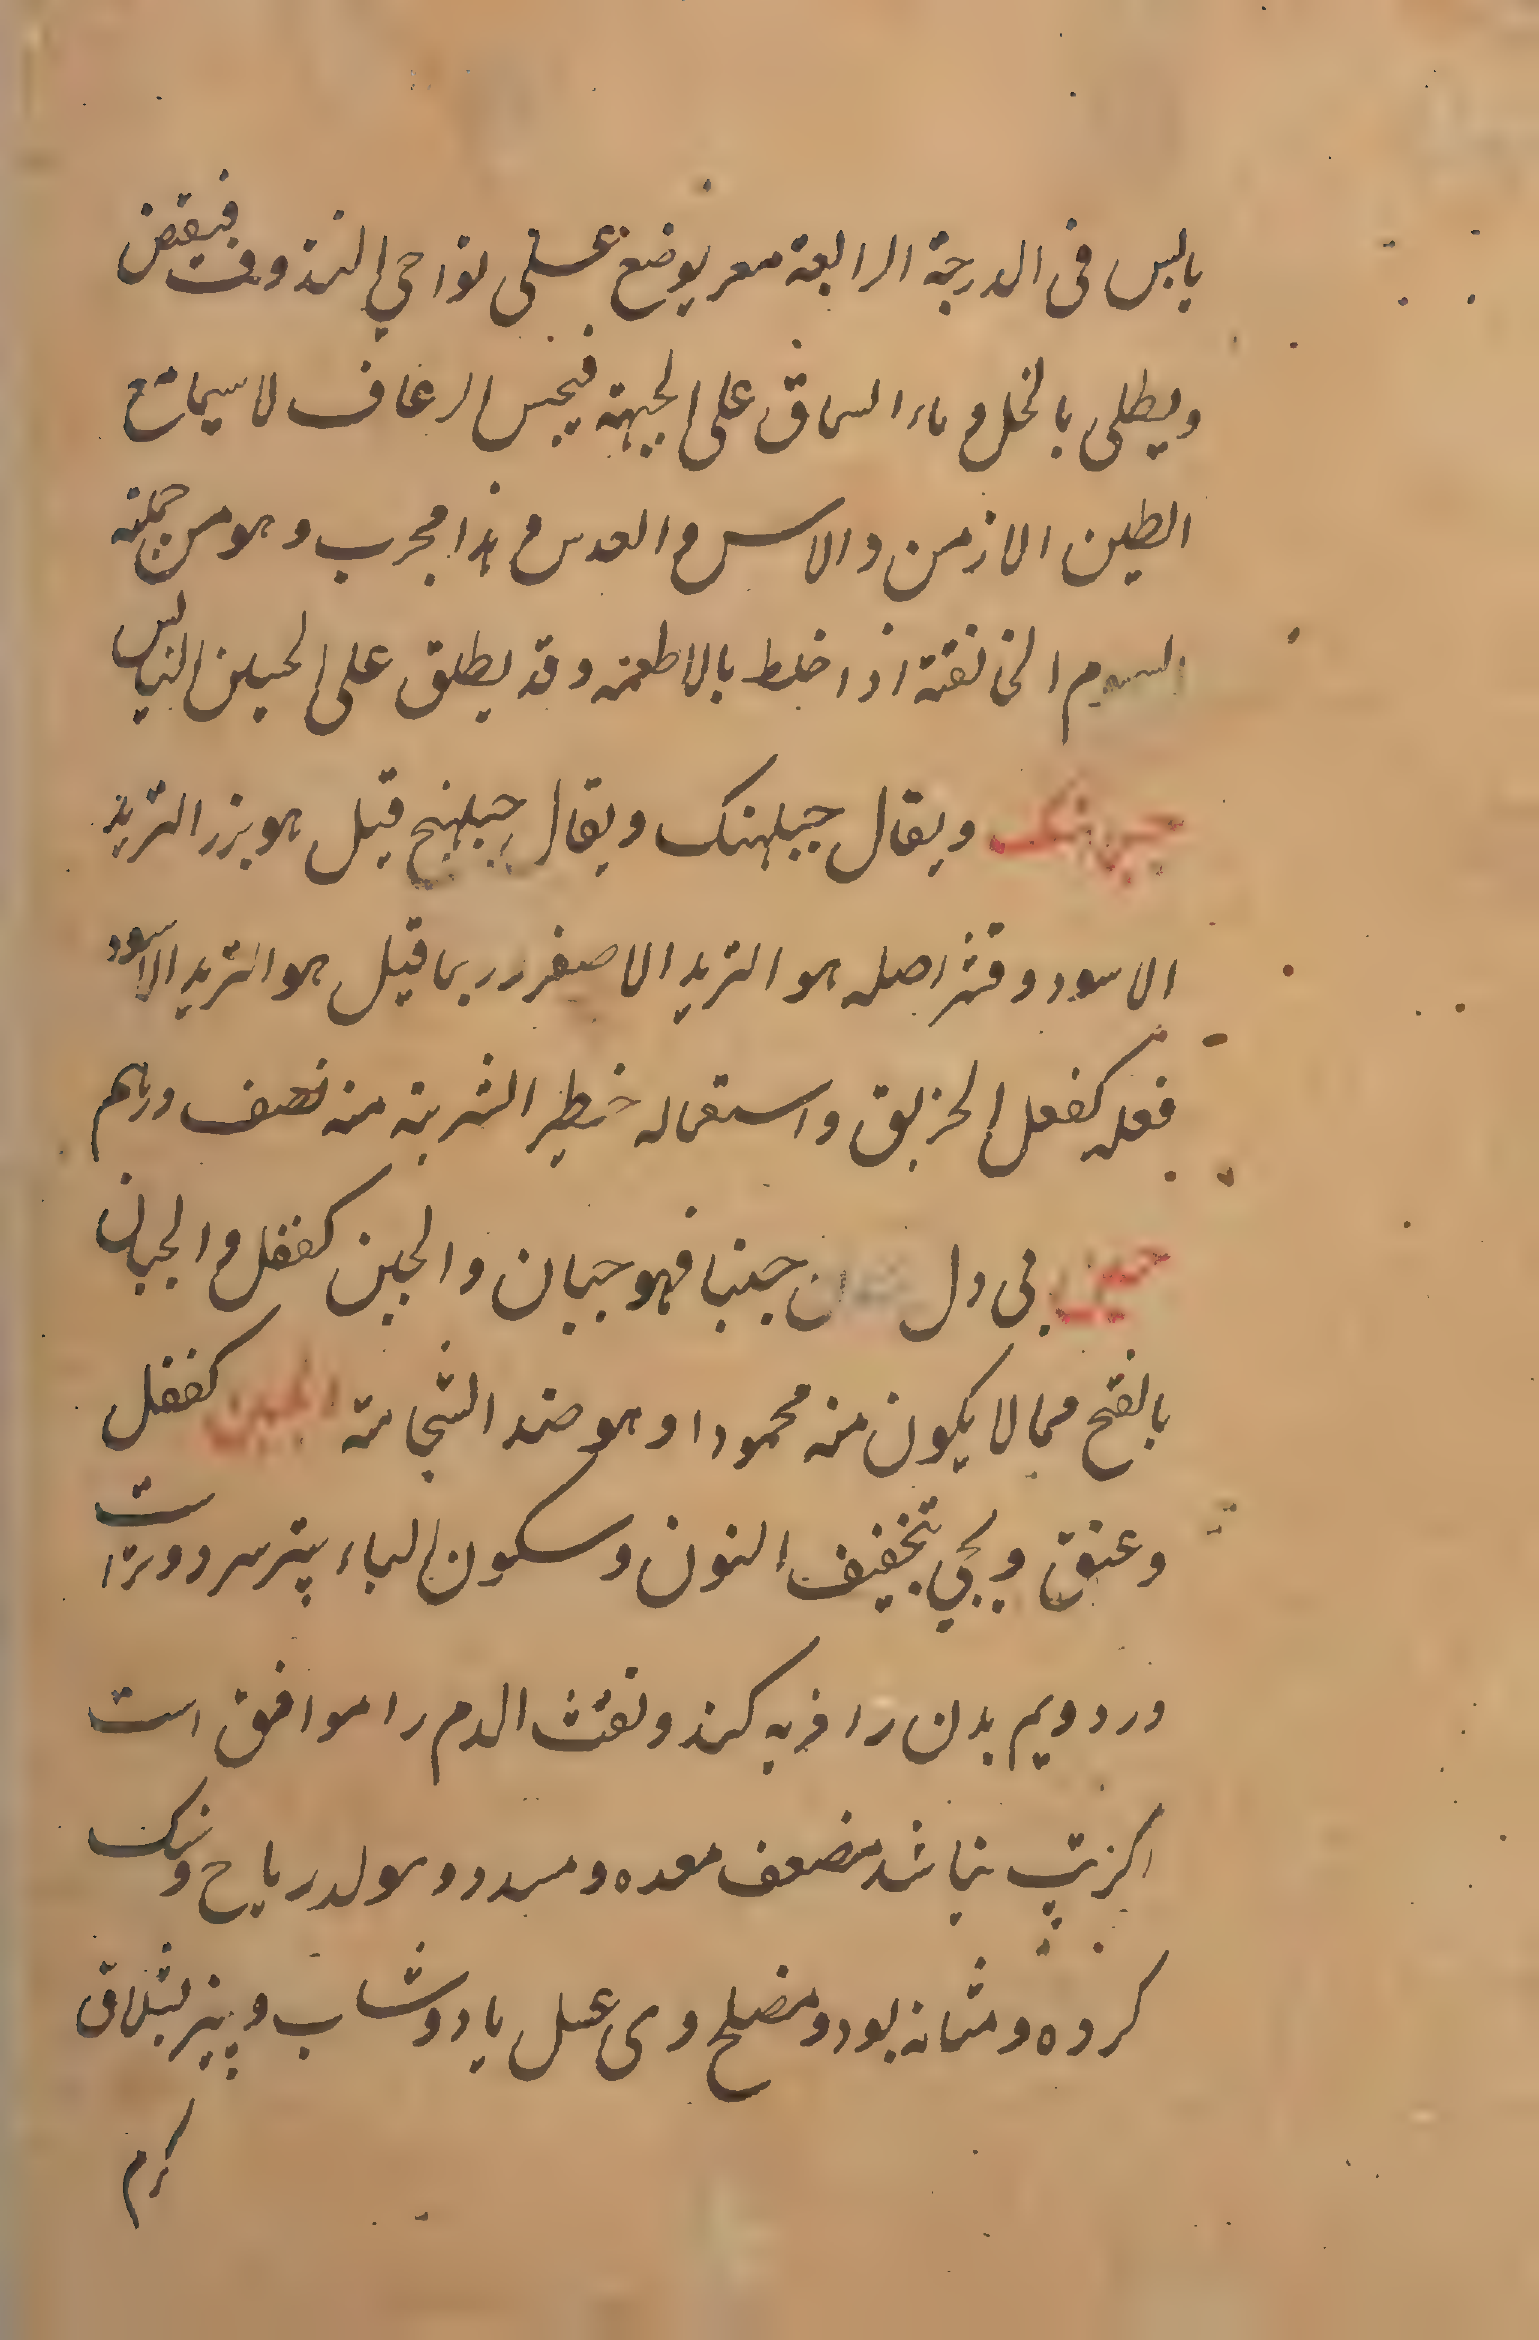 یابس فی الدرجة الرابعة معر یوضع علی نواحی النزوف فیقبض
ویطلی بالخل و ماء السماق علی الجبهة فیحبس الرعاف لا سیما مع
الطین الارمن والاس و العدس و هذا مجرب و هو من جملة
السموم الخانقة اذا خلط بالاطعمه و قد یطلق علی الحبین الیابس
جبرهنک ویقال جبلهنک ویقال جبلهنج قیل هو بزر التربد
الاسود و قشر اصله هو التربد الاصفر ربما قیل هو التربد الاسود
فعله کفعل الخربق و استعماله خطیر الشربة منه نصف درهم
جبن بی دل جبنا فهو جبان و الجبن کقفل و الجبان
بالفتح مما لا یکون منه محمودا و هو ضد الشجاعة الجبن کقفل
و عنق و یجی بتخفیف النون و سکون الباء پنیر سرد و تر است
در دویم بدن را فربه کند و نفث الدم را موافق است
اگر تپ نباشد مضعف معده و مسدد و مولد ریاح و سنک
کرده و مثانه بود و مصلح وی عسل یا دوشاب و پنیر
کرم